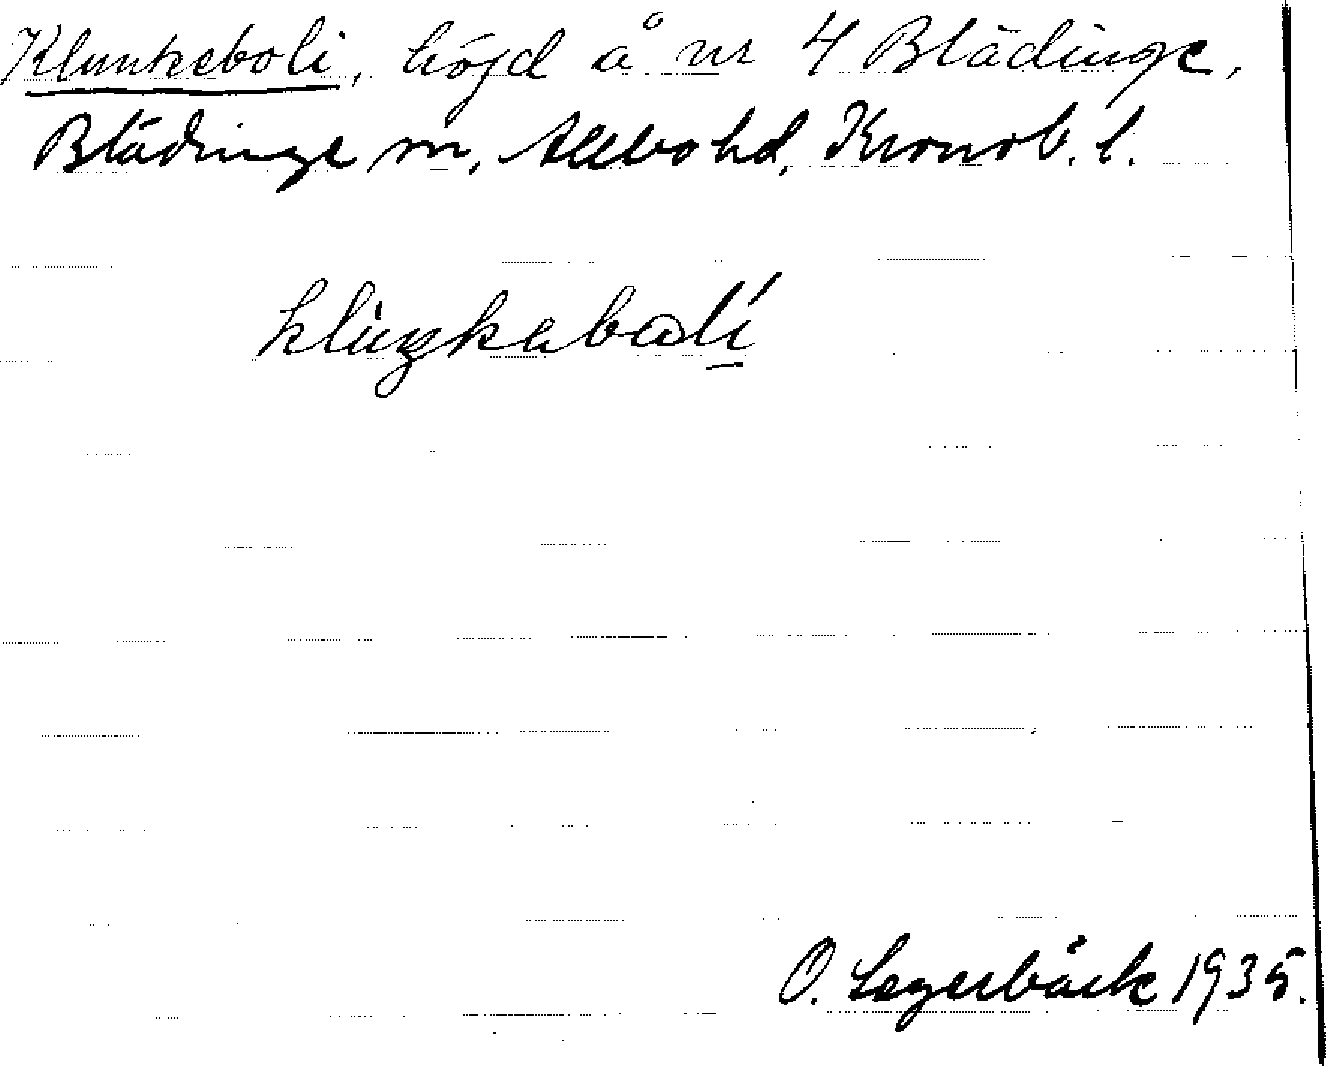 Klunkeboli, höjd å nr 4 Blädinge,
Blädinge sn, Allbo hd, Kronob. l.
klùŋkabolí
O. Lagerbäck 1935.